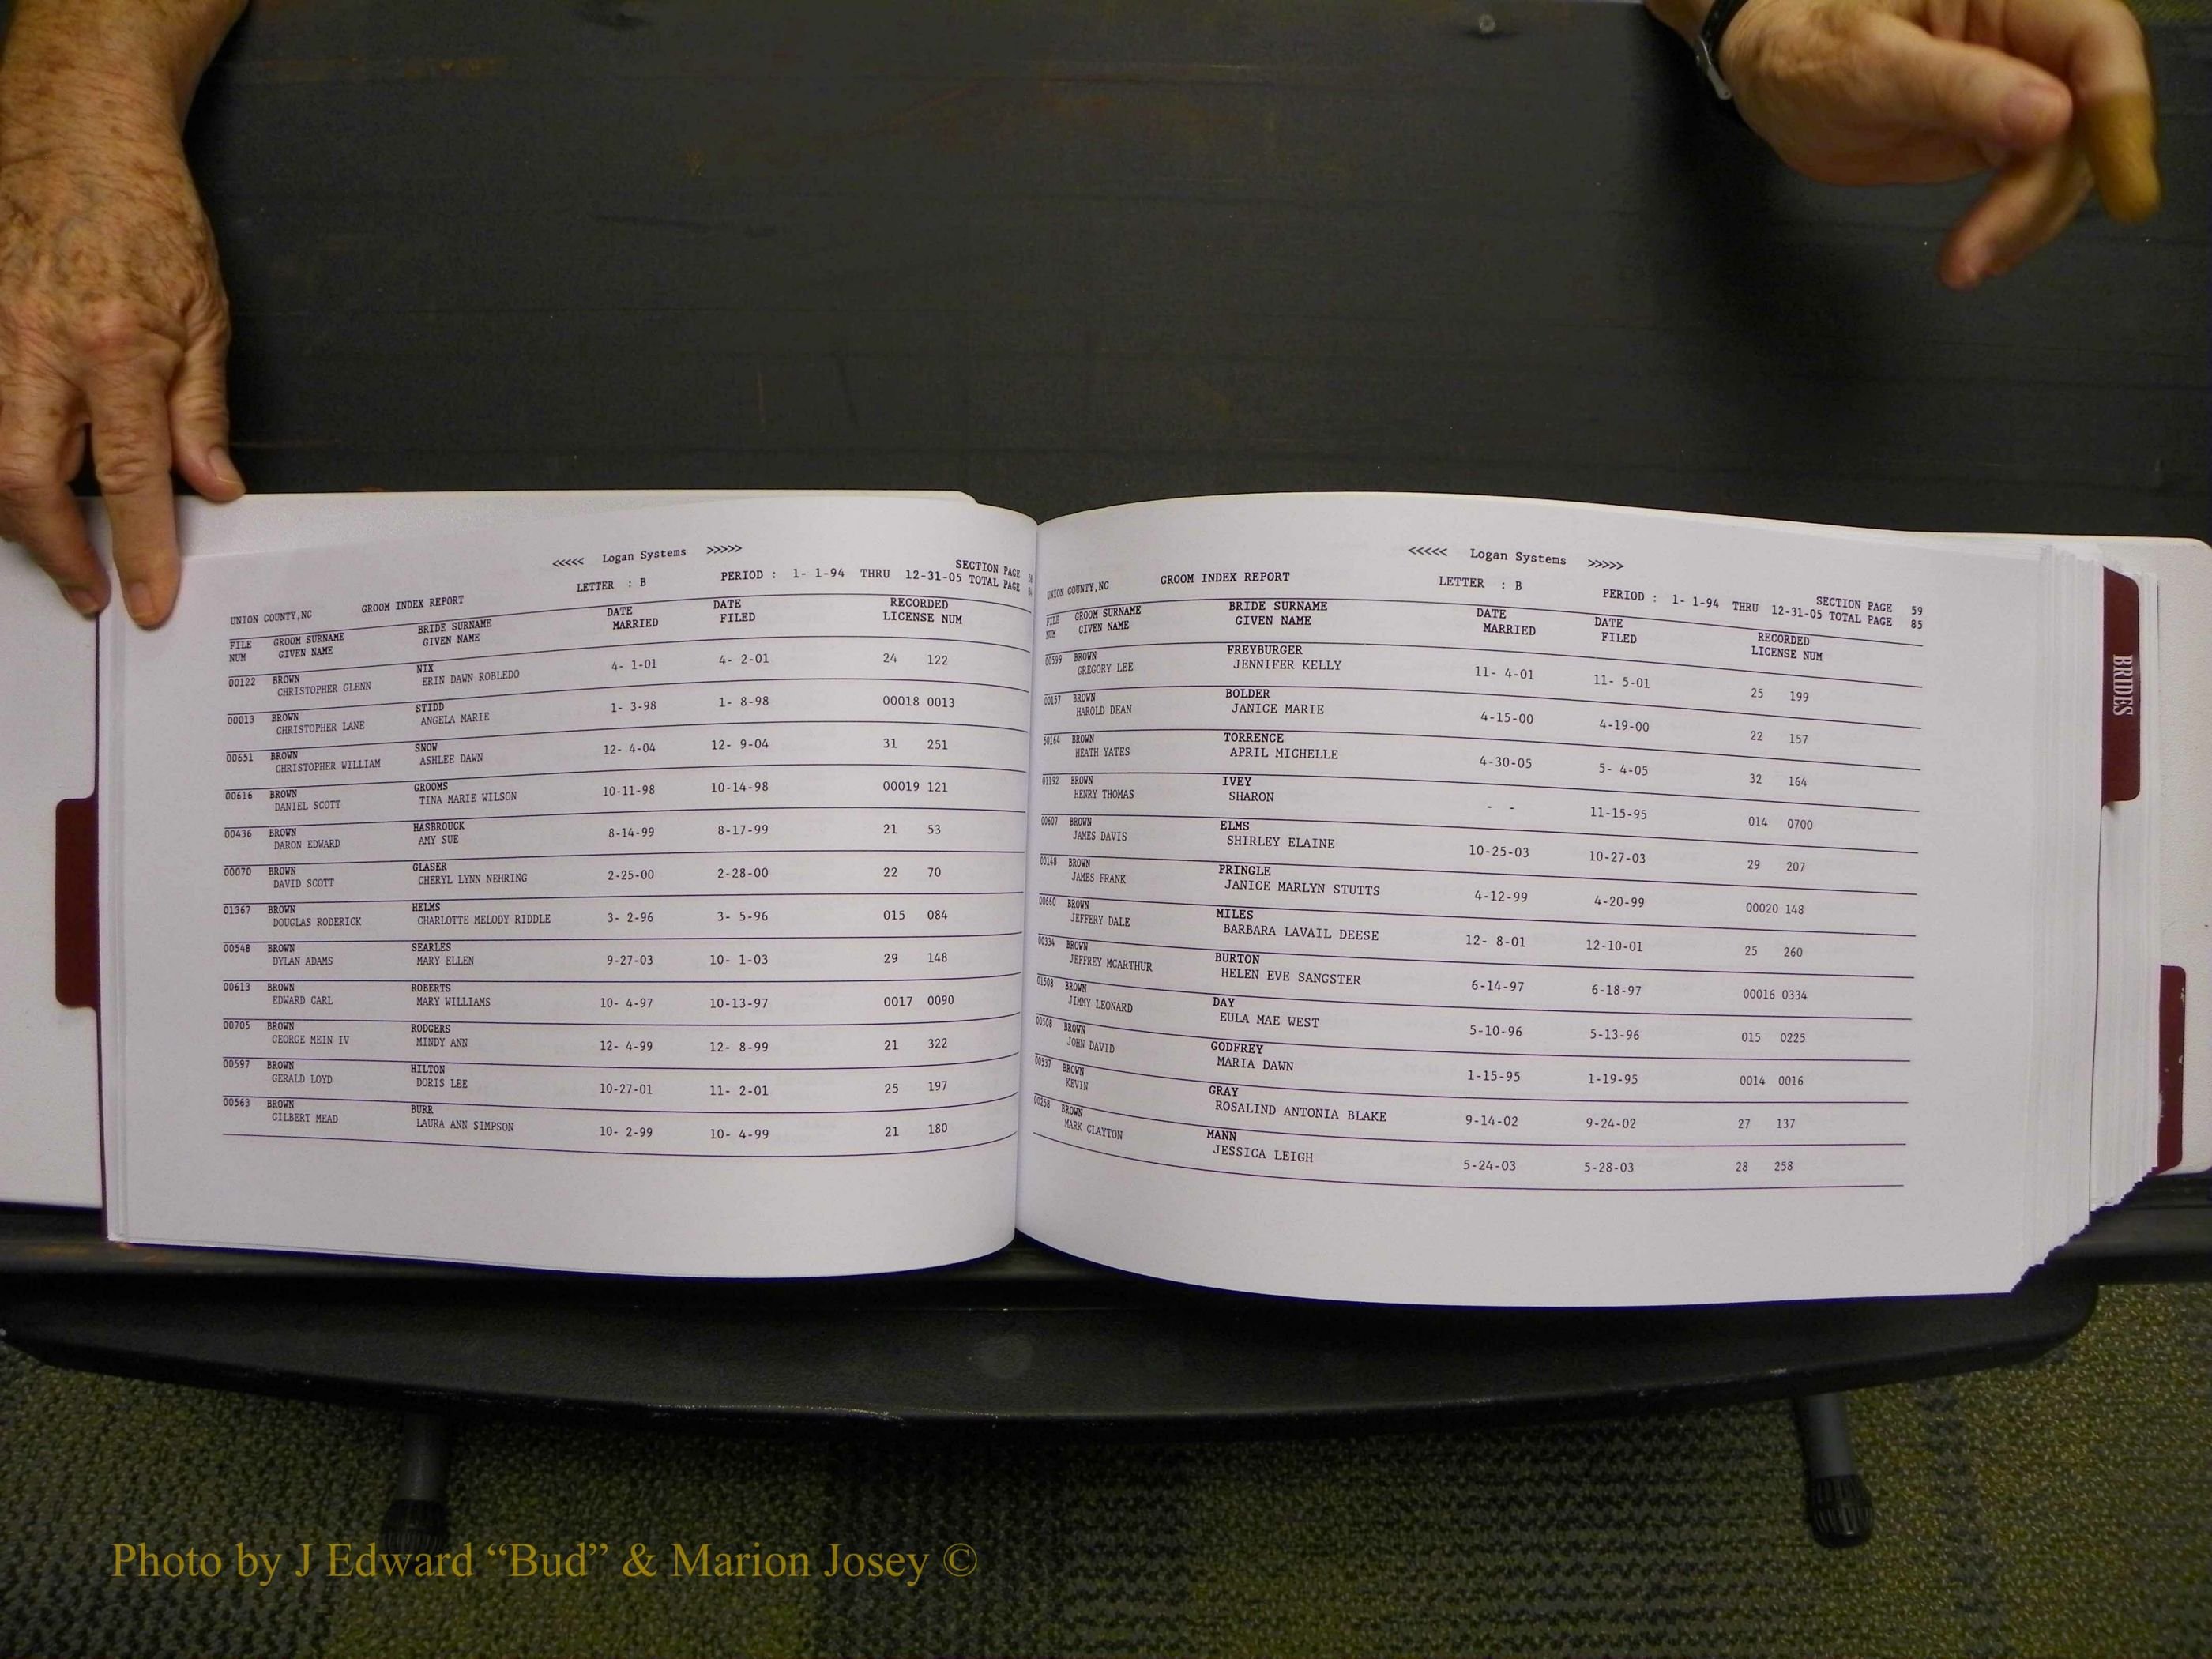 <<<<< Logan Systems >>>>>
UNION COUNTY,NC GROOM INDEX REPORT LETTER : B PERIOD : 1- 1-94 THRU 12-31-05 SECTION PAGE
TOTAL PAGE
FILE GROOM SURNAME BRIDE SURNAME DATE DATE RECORDED
NUM GIVEN NAME GIVEN NAME MARRIED FILED LICENSE NUM
00122 BROWN NIX 4- 1-01 4- 2-01 24 122
CHRISTOPHER GLENN ERIN DAWN ROBLEDO
00013 BROWN STIDD 1- 3-98 1- 8-98 00018 0013
CHRISTOPHER LANE ANGELA MARIE
00651 BROWN SNOW 12- 4-04 12- 9-04 31 251
CHRISTOPHER WILLIAM ASHLEE DAWN
00616 BROWN GROOMS 10-11-98 10-14-98 00019 121
DANIEL SCOTT TINA MARIE WILSON
00436 BROWN HASBROUCK 8-14-99 8-17-99 21 53
DARON EDWARD AMY SUE
00070 BROWN GLASER 2-25-00 2-28-00 22 70
DAVID SCOTT CHERYL LYNN NEHRING
01367 BROWN HELMS 3- 2-96 3- 5-96 015 084
DOUGLAS RODERICK CHARLOTTE MELODY RIDDLE
00548 BROWN SEARLES 9-27-03 10- 1-03 29 148
DYLAN ADAMS MARY ELLEN
00613 BROWN ROBERTS 10- 4-97 10-13-97 0017 0090
EDWARD CARL MARY WILLIAMS
00705 BROWN RODGERS 12- 4-99 12- 8-99 21 322
GEORGE MEIN IV MINDY ANN
00597 BROWN HILTON 10-27-01 11- 2-01 25 197
GERALD LOYD DORIS LEE
00563 BROWN BURR 10- 2-99 10- 4-99 21 180
GILBERT MEAD LAURA ANN SIMPSON
<<<<< Logan Systems >>>>>
UNION COUNTY,NC GROOM INDEX REPORT LETTER : B PERIOD : 1- 1-94 THRU 12-31-05 SECTION PAGE 59
TOTAL PAGE 85
FILE GROOM SURNAME BRIDE SURNAME DATE DATE RECORDED
NUM GIVEN NAME GIVEN NAME MARRIED FILED LICENSE NUM
00599 BROWN FREYBURGER 11- 4-01 11- 5-01 25 199
GREGORY LEE JENNIFER KELLY
00157 BROWN BOLDER 4-15-00 4-19-00 22 157
HAROLD DEAN JANICE MARIE
50164 BROWN TORRENCE 4-30-05 5- 4-05 32 164
HEATH YATES APRIL MICHELLE
01192 BROWN IVEY - - 11-15-95 014 0700
HENRY THOMAS SHARON
00607 BROWN ELMS 10-25-03 10-27-03 29 207
JAMES DAVIS SHIRLEY ELAINE
00148 BROWN PRINGLE 4-12-99 4-20-99 00020 148
JAMES FRANK JANICE MARLYN STUTTS
00660 BROWN MILES 12- 8-01 12-10-01 25 260
JEFFERY DALE BARBARA LAVAIL DEESE
00334 BROWN BURTON 6-14-97 6-18-97 00016 0334
JEFFREY MCARTHUR HELEN EVE SANGSTER
01508 BROWN DAY 5-10-96 5-13-96 015 0225
JIMMY LEONARD EULA MAE WEST
00508 BROWN GODFREY 1-15-95 1-19-95 0014 0016
JOHN DAVID MARIA DAWN
00537 BROWN GRAY 9-14-02 9-24-02 27 137
KEVIN ROSALIND ANTONIA BLAKE
00258 BROWN MANN 5-24-03 5-28-03 28 258
MARK CLAYTON JESSICA LEIGH
BRIDES
Photo by J Edward “Bud” & Marion Josey ©